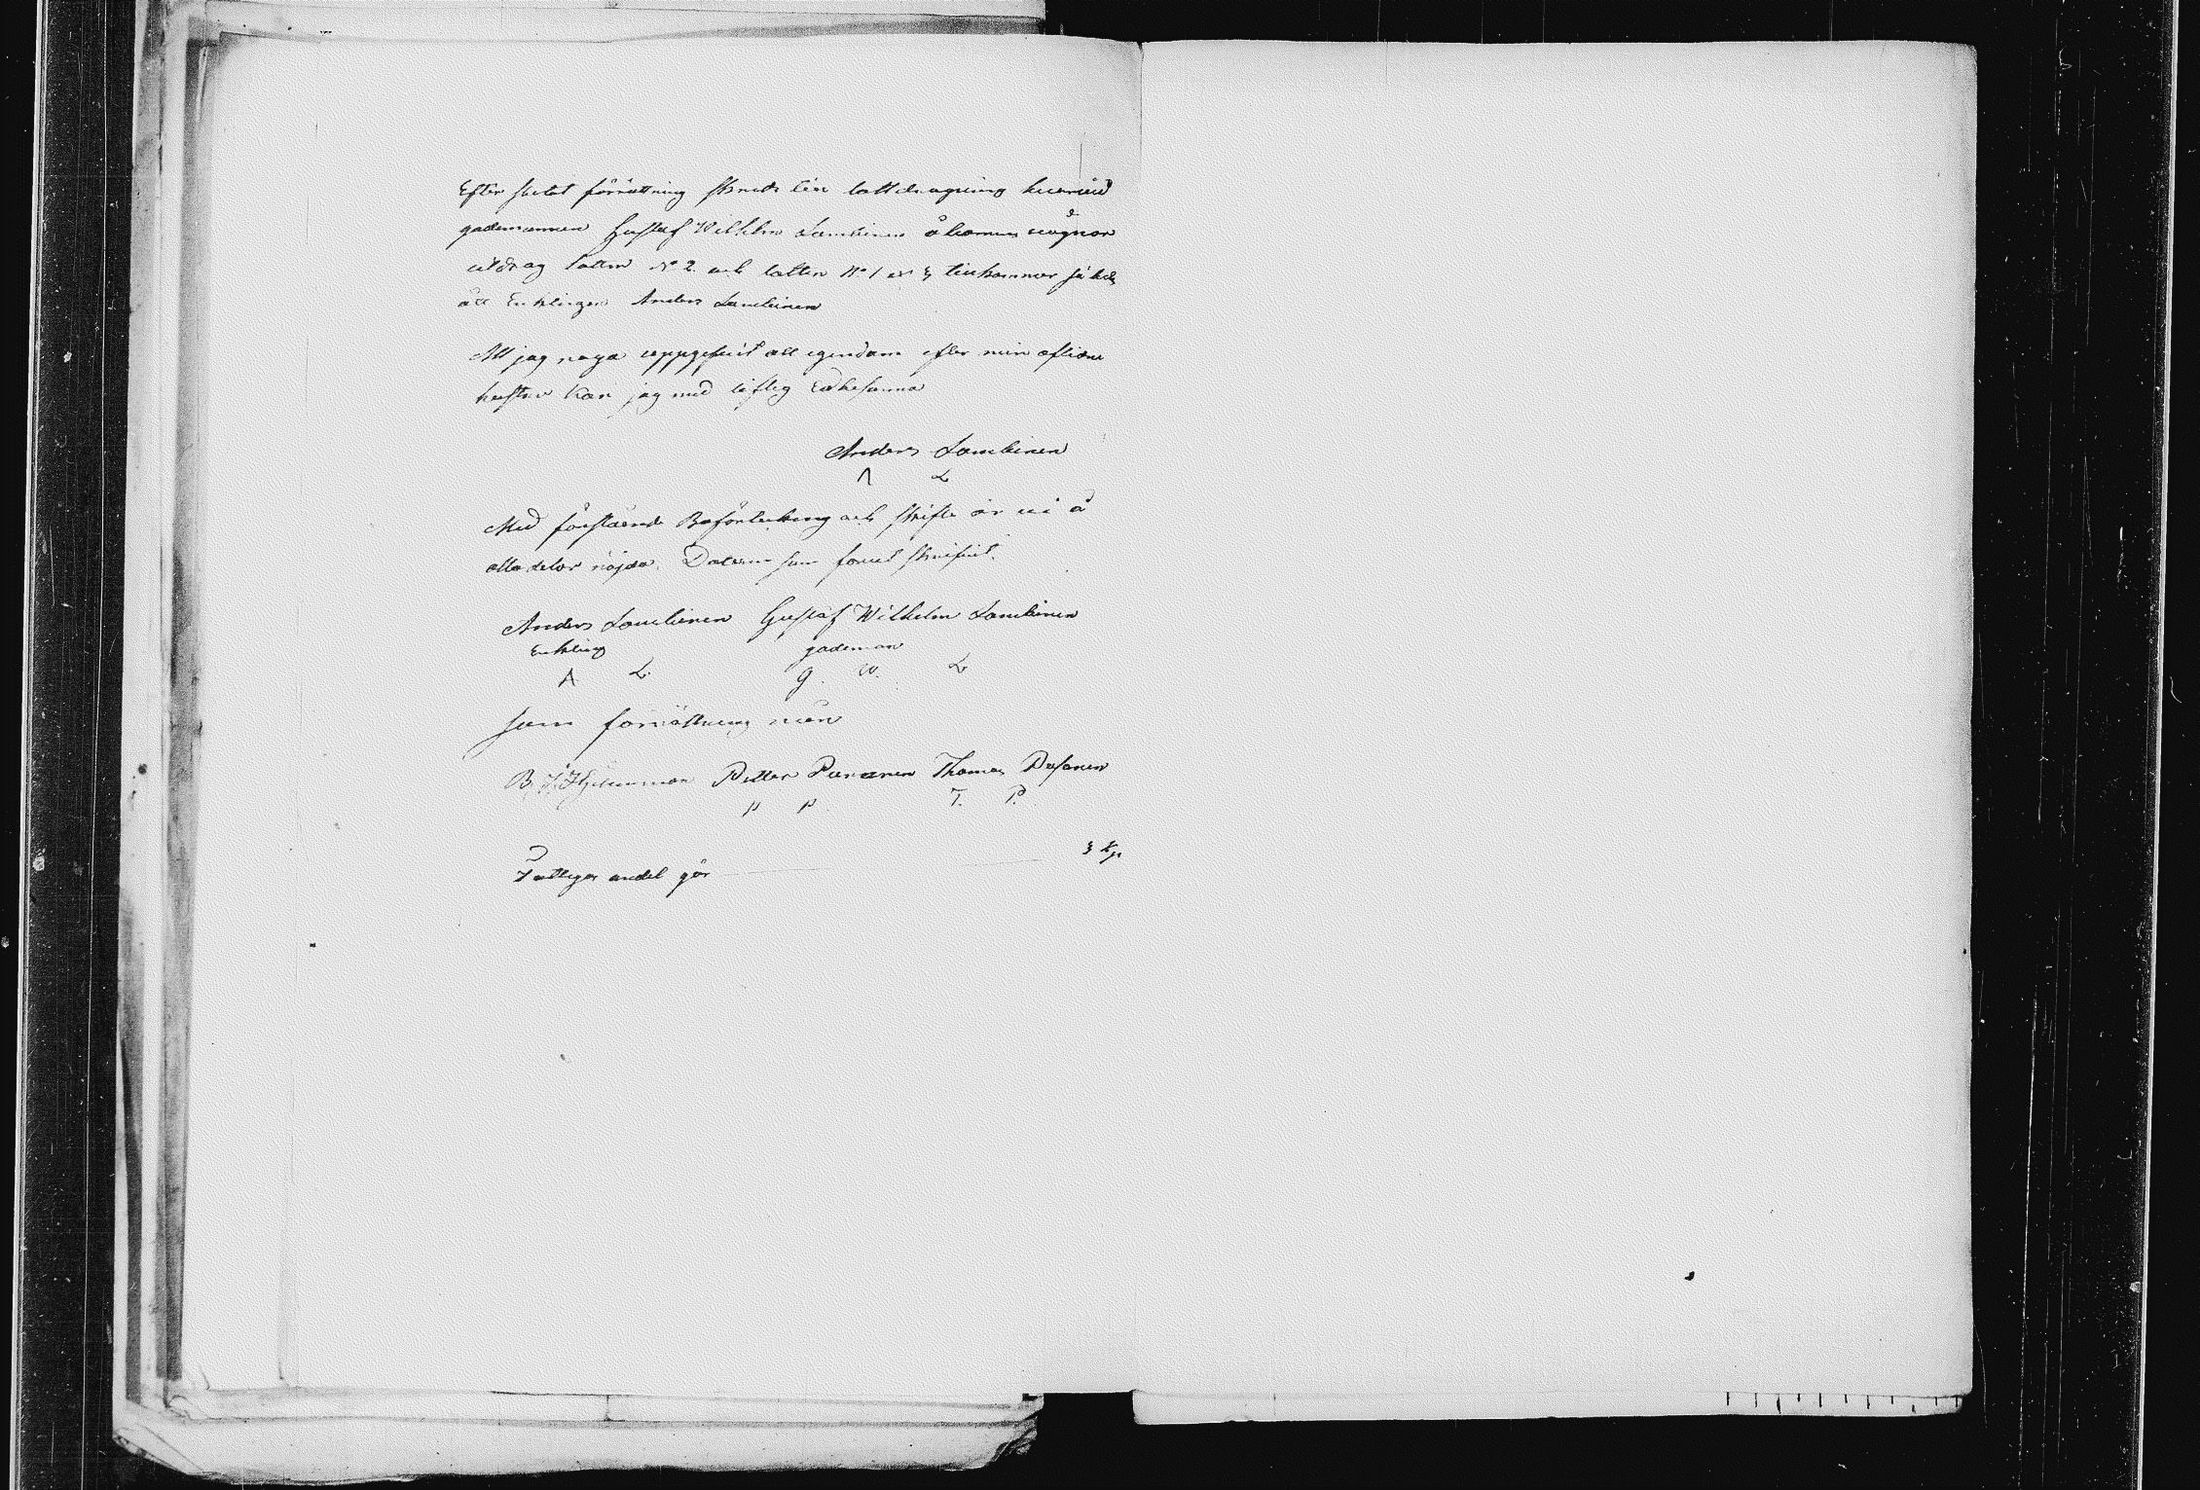 Efter slutat förrättning skreds till lottdragning hvarvid
godemannen Gustaf Wilhelm Lamkinen å barnens vägnar
utdrog lotten N:o 2 och lotten N:o 1 tillkommer således
åt Enklingen Anders Lamkinen
Att jag noga uppgifvit all egendom efter min aflidne
hustru kan jag med liflig Ed besanna
Anders Lamkinen
A L
Med förestående Boförteckning och skifte är vi å
alla delar nöjda. Datum som förut skrifvit.
Anders Lamkinen Gustaf Wilhelm Lamkinen
Enkling godeman
A L. G. W. L
som förrättning män
Petter Puranen Thomas Pesonen
P P. T. P.
Fattiges andel gör 3 Kp